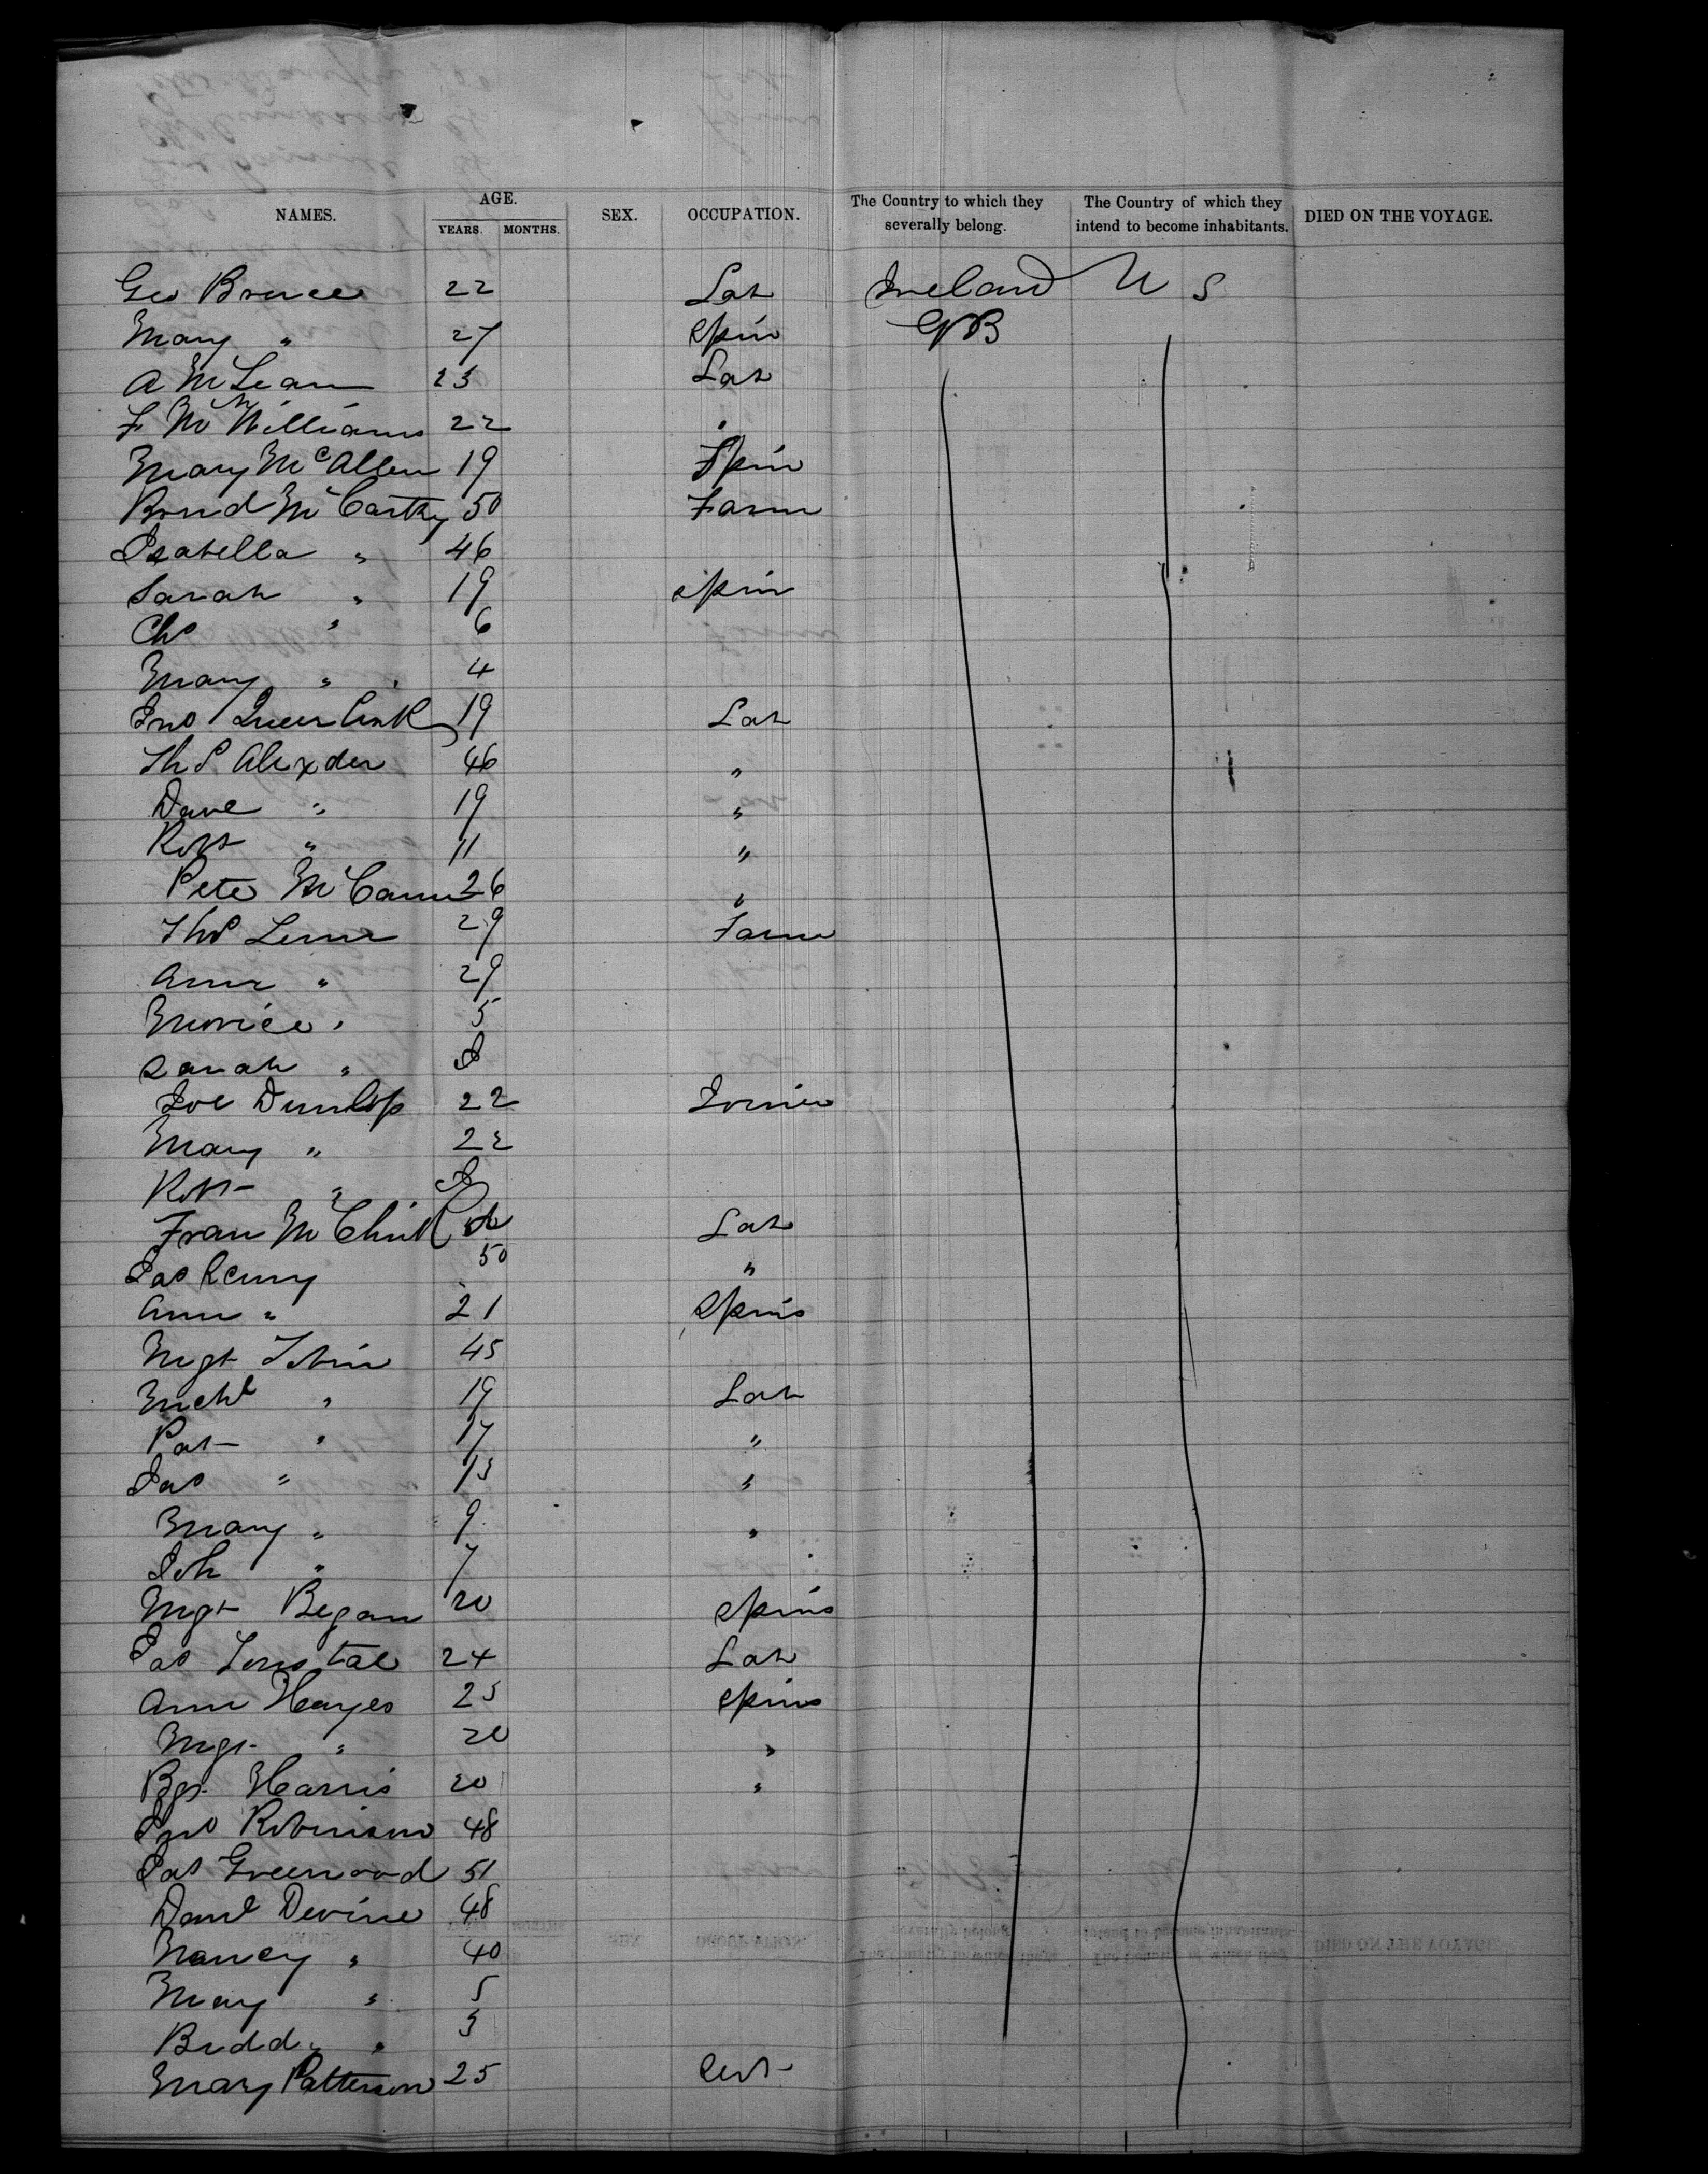 NAMES. AGE. YEARS. MONTHS. SEX. OCCUPATION. The Country to which they severally belong. The Country of which they intend to become inhabitants. DIED ON THE VOYAGE.
Geo Bruce 22 Lab Ireland U S
Mary " 27 Spin GB
A McLean 23 Lab
F McWilliams 22 "
Mary McAllen 19 Spin
Bernd McCarthy 50 Farm
Isabella " 46
Sarah " 19 Spin
Chs " 6
Mary " 4
Jno 19 Lab
Ths Alexder 46 "
Dave " 19 "
Robt " 11 "
Pete McCann 26 "
Ths 29 Farm
Ann " 29
" 5
Sarah "
Joe Dunlop 22 Joiner
Mary " 22
Robt "
Fran Lab
Jas 50 "
Ann " 21 Spins
Mgt Tobin 45
Michl " 19 Lab
Pat " 17 "
Jas " 13 "
Mary " 9 "
Joh " 7
Mgt Began 20 Spins
Jas 24 Lab
Ann Hayes 25 Spins
Mgt " 20 "
Bgt Harris 20 "
Jno Robinson 48
Jas Greenwood 51
Danl Devine 48
Nancy " 40
Mary " 5
Bridd " 3
Mary Patterson 25 Servt